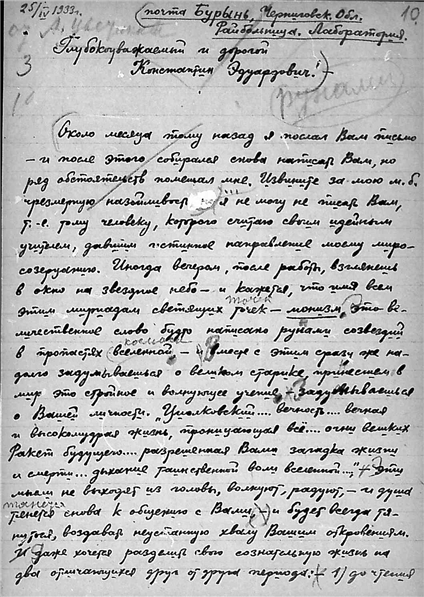 25/IV 1933 г. почта Бурынь, Черниговск. Обл. 10
Райбольница. Лаборатория.
Глубокоуважаемый и дорогой
3 Константин Эдуардович! —
Около месяца тому назад я послал Вам письмо
— и после этого собирался снова написать Вам, но
ряд обстоятельств помешал мне. Извините за мою м. б.
чрезмерную назойливость я не могу не писать Вам,
т.-е. тому человеку, которого считаю своим идейным
учителем, давшим истинное направление моему миро-
созерцанию. Иногда вечером, после работы, взглянешь
в окно на звездное небо — и кажется, что имя всем
точек
этим мириадам светящих точек — монизм. Это ве-
личественное слово будто написано рунами созвездий
космоса
в пропастях вселенной, — и вместе с этим сразу же на-
долго задумываешься о великом старике, принесшем в
мир это стройное и волнующее учение, задумываешься
о Вашей личности. Циолковский.... вечность... вечная
и высокомудрая жизнь, проницающая всё.... огни великих
Ракет будущего.... разрешенная Вами загадка жизни
и смерти... дыхание таинственной воли вселенной..." Эти
мысли не выходят из головы, волнуют, радуют, — и душа
тянется
тянется снова к общению с Вами, и будет всегда тя-
нуться, воздавать неустанную хвалу Вашим откровениям.
И даже хочется разделить свою сознательную жизнь на
два отличающихся друг от друга периода: 1) до чтения